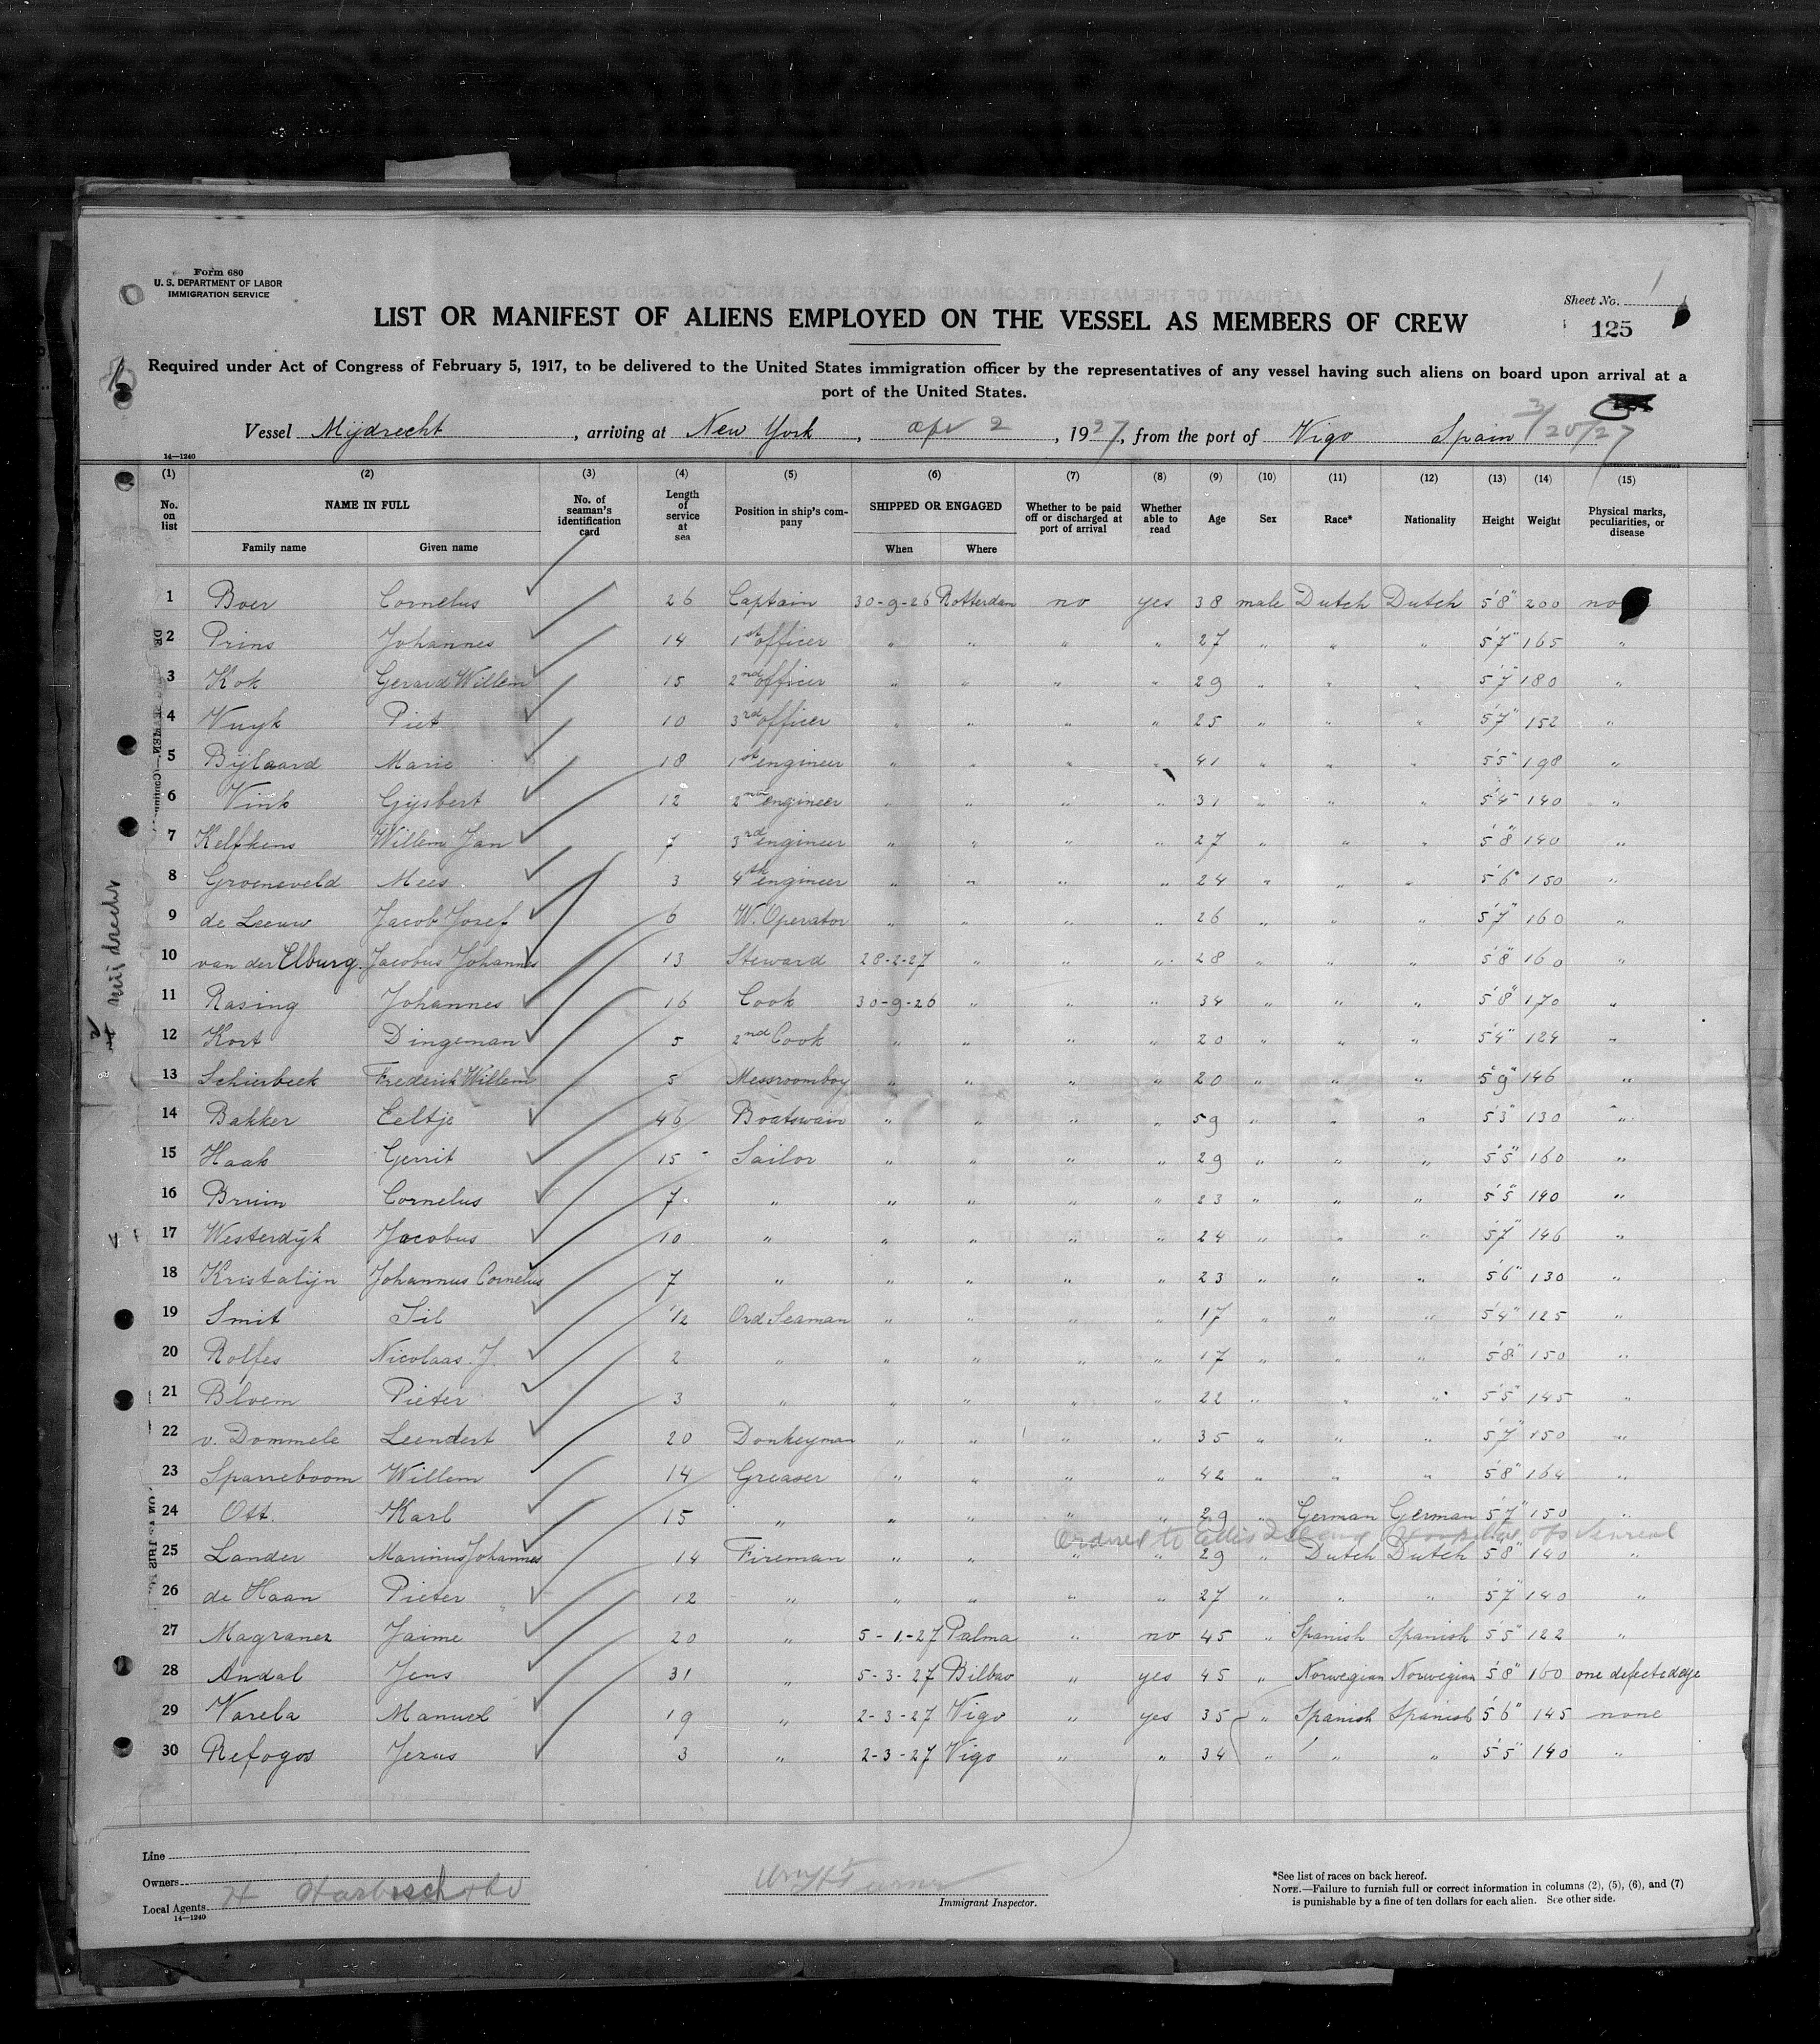 Form 680
U. S. DEPARTMENT OF LABOR
IMMIGRATION SERVICE
Sheet No. 1
125
LIST OR MANIFEST OF ALIENS EMPLOYED ON THE VESSEL AS MEMBERS OF CREW
Required under Act of Congress of February 5, 1917, to be delivered to the United States immigration officer by the representatives of any vessel having such aliens on board upon arrival at a
port of the United States.
Vessel Mijdrecht, arriving at New York, Apr 2, 1927, from the port of Vigo Spain 3/20/27
14—1240
(1) (2) (3) (4) (5) (6) (7) (8) (9) (10) (11) (12) (13) (14) (15)
No. on list NAME IN FULL No. of seaman's identification card Length of service at sea Position in ship's company SHIPPED OR ENGAGED Whether to be paid off or discharged at port of arrival Whether able to read Age Sex Race* Nationality Height Weight Physical marks, peculiarities, or disease
Family name Given name When Where
1 Boer Cornelus 26 Captain 30-9-26 Rotterdam no yes 38 male Dutch Dutch 5'8" 200 no
2 Prins Johannes 14 1st officer " " " " 27 " " " 5'7" 165 "
3 Kok Gerard Willem 15 2nd officer " " " " 29 " " " 5'7" 180 "
4 Vuyk Piet 10 3rd officer " " " " 25 " " " 5'7" 152 "
5 Bijlaard Marie 18 1st engineer " " " " 41 " " " 5'5" 198 "
6 Vink Gijsbert 12 2nd engineer " " " " 31 " " " 5'4" 140 "
7 Kelfkens Willem Jan 7 3rd engineer " " " " 27 " " " 5'8" 140 "
8 Groeneveld Mees 3 4th engineer " " " " 24 " " " 5'6" 150 "
9 de Leeuw Jacob Josef 6 W. Operator " " " " 26 " " " 5'7" 160 "
10 van der Elburg. Jacobus Johannes 13 Steward 28-2-27 " " " 28 " " " 5'8" 160 "
11 Rasing Johannes 16 Cook 30-9-26 " " " 34 " " " 5'8" 170 "
12 Kort Dingeman 5 2nd Cook " " " " 20 " " " 5'4" 124 "
13 Schierbeek Frederik Willem 5 Messroomboy " " " " 20 " " " 5'9" 146 "
14 Bakker Eeltje 46 Boatswain " " " " 59 " " " 5'3" 130 "
15 Haak Gerrit 15 Sailor " " " " 29 " " " 5'5" 160 "
16 Bruin Cornelus 7 " " " " " 23 " " " 5'5" 140 "
17 Westerdijk Jacobus 10 " " " " " 24 " " " 5'7" 146 "
18 Kristalijn Johannus Cornelus 7 " " " " " 23 " " " 5'6" 130 "
19 Smit Sil 1/2 Ord Seaman " " " " 17 " " " 5'4" 125 "
20 Rolfes Nicolaas. J. 2 " " " " " 17 " " " 5'8" 150 "
21 Bloem Pieter 3 " " " " " 22 " " " 5'5" 145 "
22 v. Dommele Leendert 20 Donkeyman " " " " 35 " " " 5'7" 150 "
23 Sparreboom Willem 14 Greaser " " " " 42 " " " 5'8" 164 "
24 Ott. Karl 15 " " " " " 29 " German German 5'7" 150 "
Ordered to Ellis Island Hospital
25 Lander Marinus Johannes 14 Fireman " " " " 29 " Dutch Dutch 5'8" 140 "
26 de Haan Pieter 12 " " " " " 27 " " " 5'7" 140 "
27 Magraner Jaime 20 " 5-1-27 Palma " no 45 " Spanish Spanish 5'5" 122 "
28 Andal Jens 31 " 5-3-27 Bilbao " yes 45 " Norwegian Norwegian 5'8" 160 one defected eye
29 Varela Manuel 19 " 2-3-27 Vigo " yes 35 " Spanish Spanish 5'6" 145 none
30 Refogos Jesus 3 " 2-3-27 Vigo " " 34 " " " 5'5" 140 "
Line
Owners
Local Agents
14—1240
Immigrant Inspector.
*See list of races on back hereof.
NOTE.—Failure to furnish full or correct information in columns (2), (5), (6), and (7)
is punishable by a fine of ten dollars for each alien. See other side.